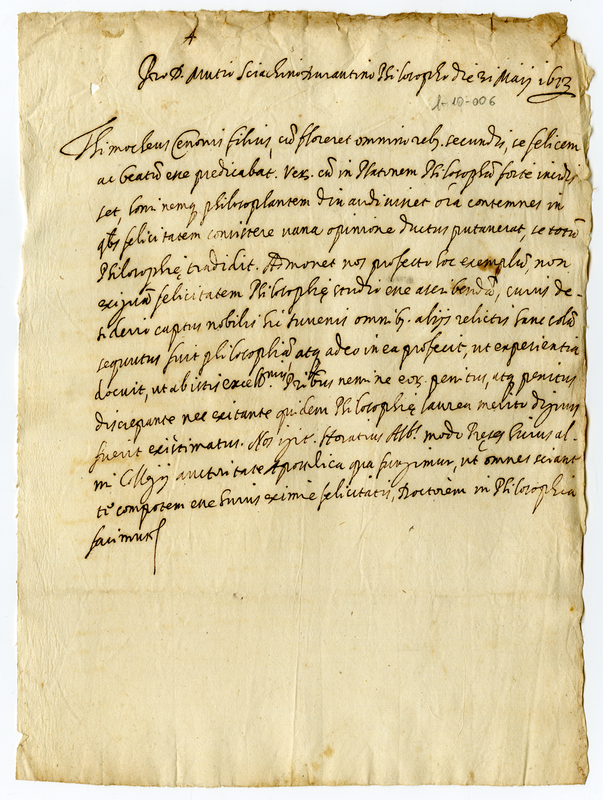 4
Pro D. Mutio Sciachino Durantino Philosopho die 31 Maij 1613
1-10-006
Thimotheus Cenonis filius, cū floreret omnino reb. secundis, se felicem
ac beatū esse predicabat. Verū cū in Platonem Philosophū forte incidis
set, hominemq philosophantem diu audivisset oīa contemnes in
qbs felicitatem consistere vana opinione ductus putaverat, se totū
Philosophię tradidit. Admonet nos profecto hoc exemplū, non
exiguā felicitatem Philosophię studio esse ascribendā, cuius de-
siderio captus nobilis hic Iuvenis omnib. alijs relictis hanc solā
sequutus fuit philosophiā atq adeo in ea profecit, ut experientia
docuit, ut ab istis excell.mis Prībus nemine eor. penitus, atq penitus
discrepante nec exitante quidem Philosophię laurea merito dignus
fuerit existimatus. Nos igit. Horatius Alb. modo huius al-
mi Collegij auctoritate Apostolica qua fungimur, ut omnes sciant
te compotem esse huius eximie felicitatis, Doctorem in Philosophia
facimus